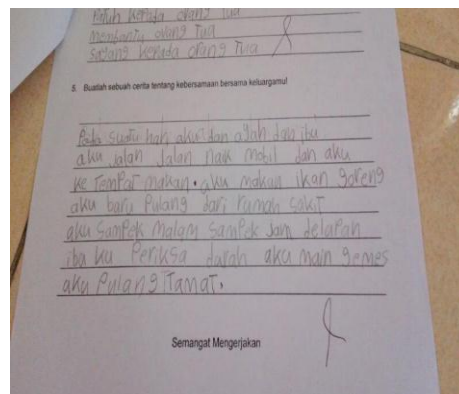 Patuh kepada orang tua
Membantu orang Tua
Sayang kepada orang Tua
5. Buatlah sebuah cerita tentang kebersamaan bersama keluargamu!
Pada suatu hari aku dan ayah dan ibu
aku jalan Jalan naik mobil dan aku
ke Tempat makan. aku makan ikan goreng
aku baru Pulang dari rumah sakit
aku sampek malam sampek Jam delapan
ibu ku Periksa darah aku main gemes
aku Pulang Tamat.
Semangat Mengerjakan